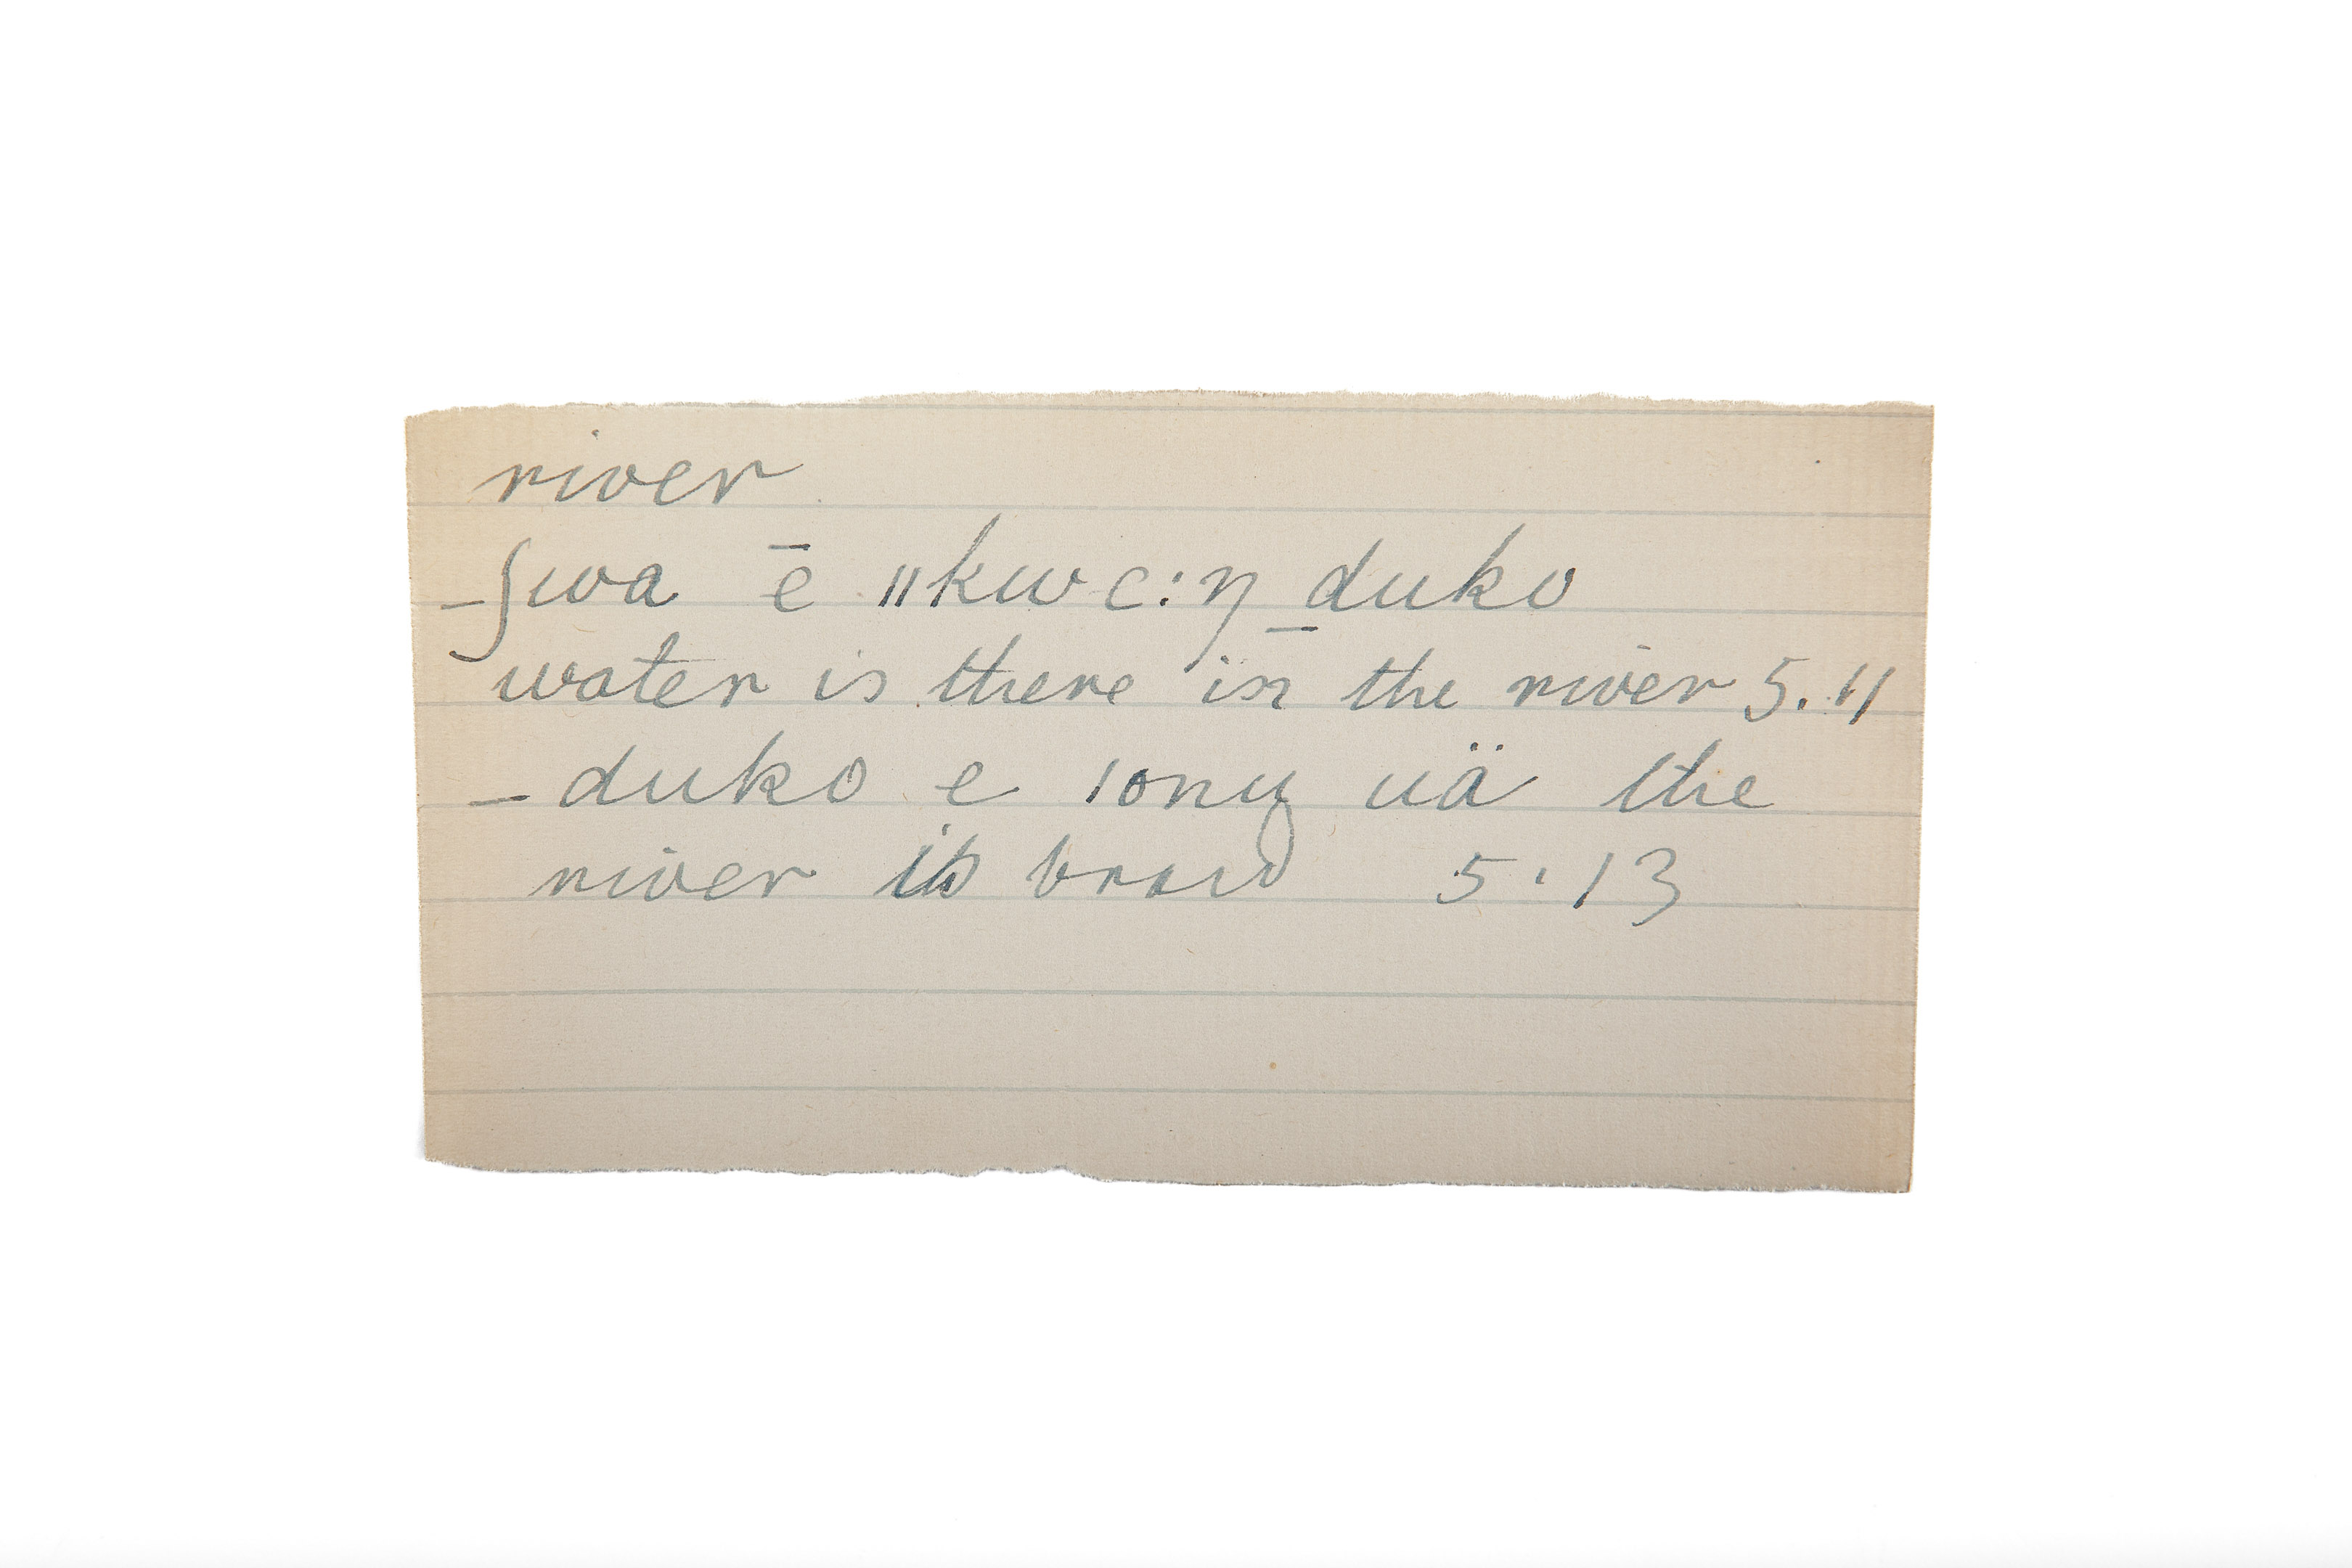 river
_ʃwa ē ǁkwe:ŋ _duko
water is there in the river 5.11
_duko e ıonu uä the
river is broad 5.13